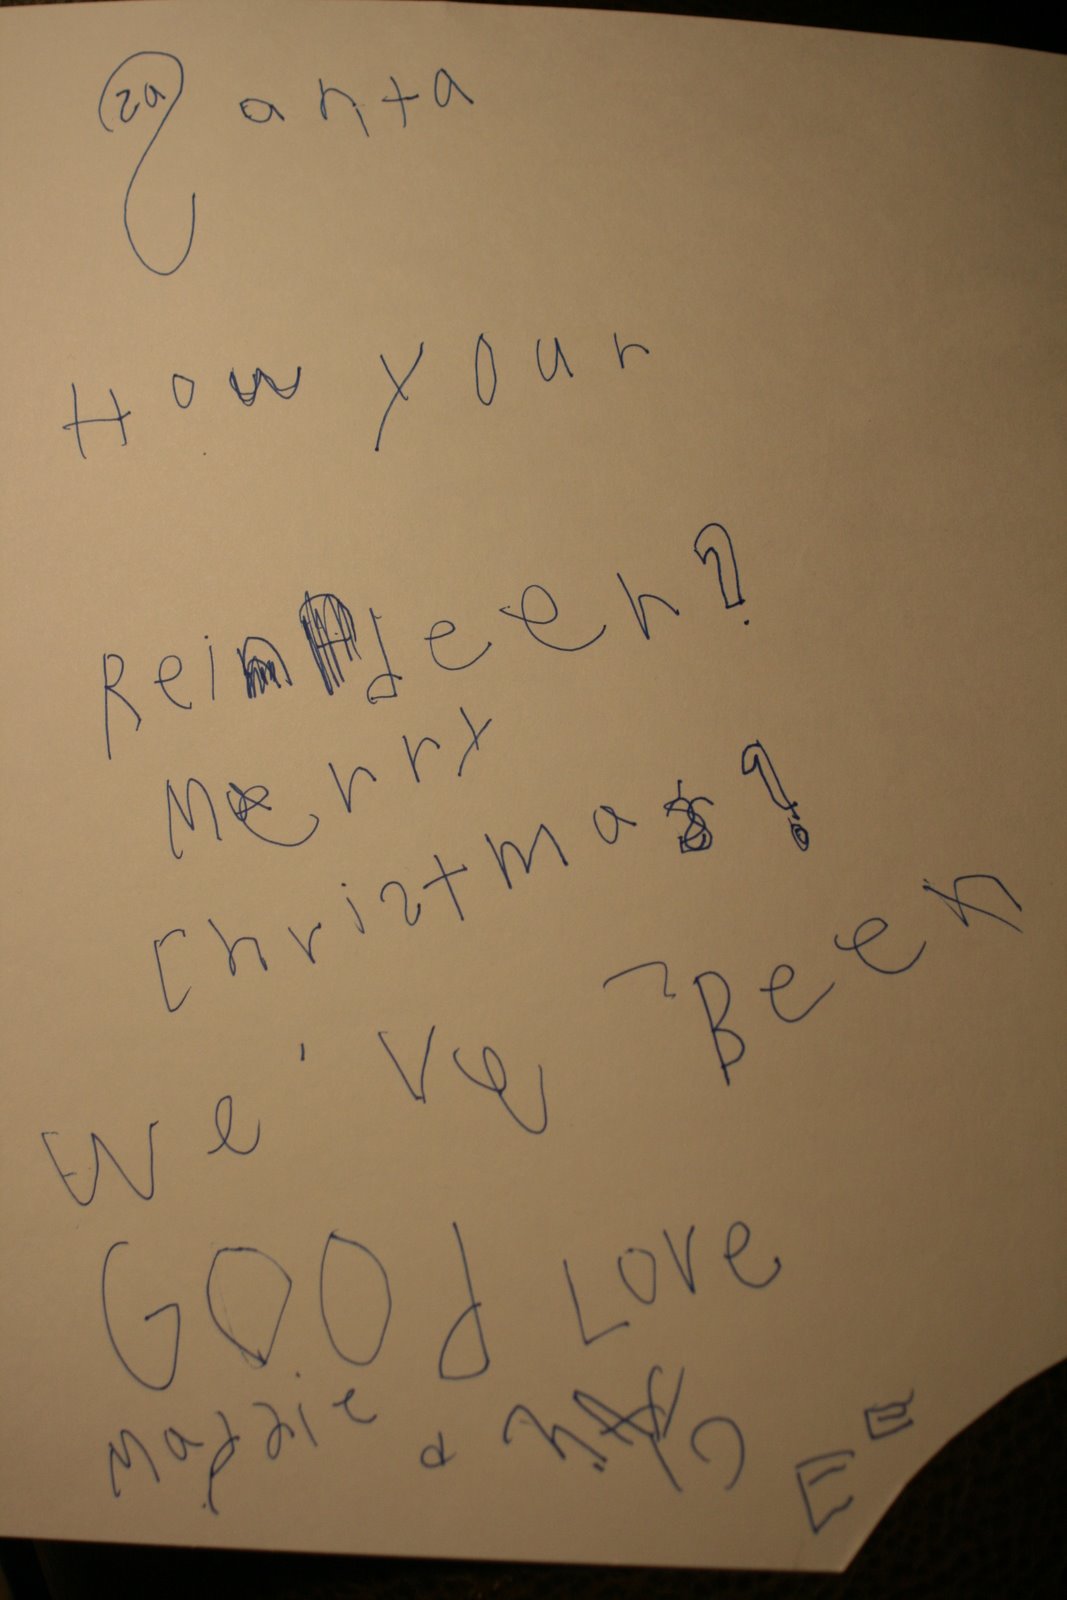 Santa
How your
Reindeer?
Merry
Christmas!
we've Been
GOOd Love
Maddie